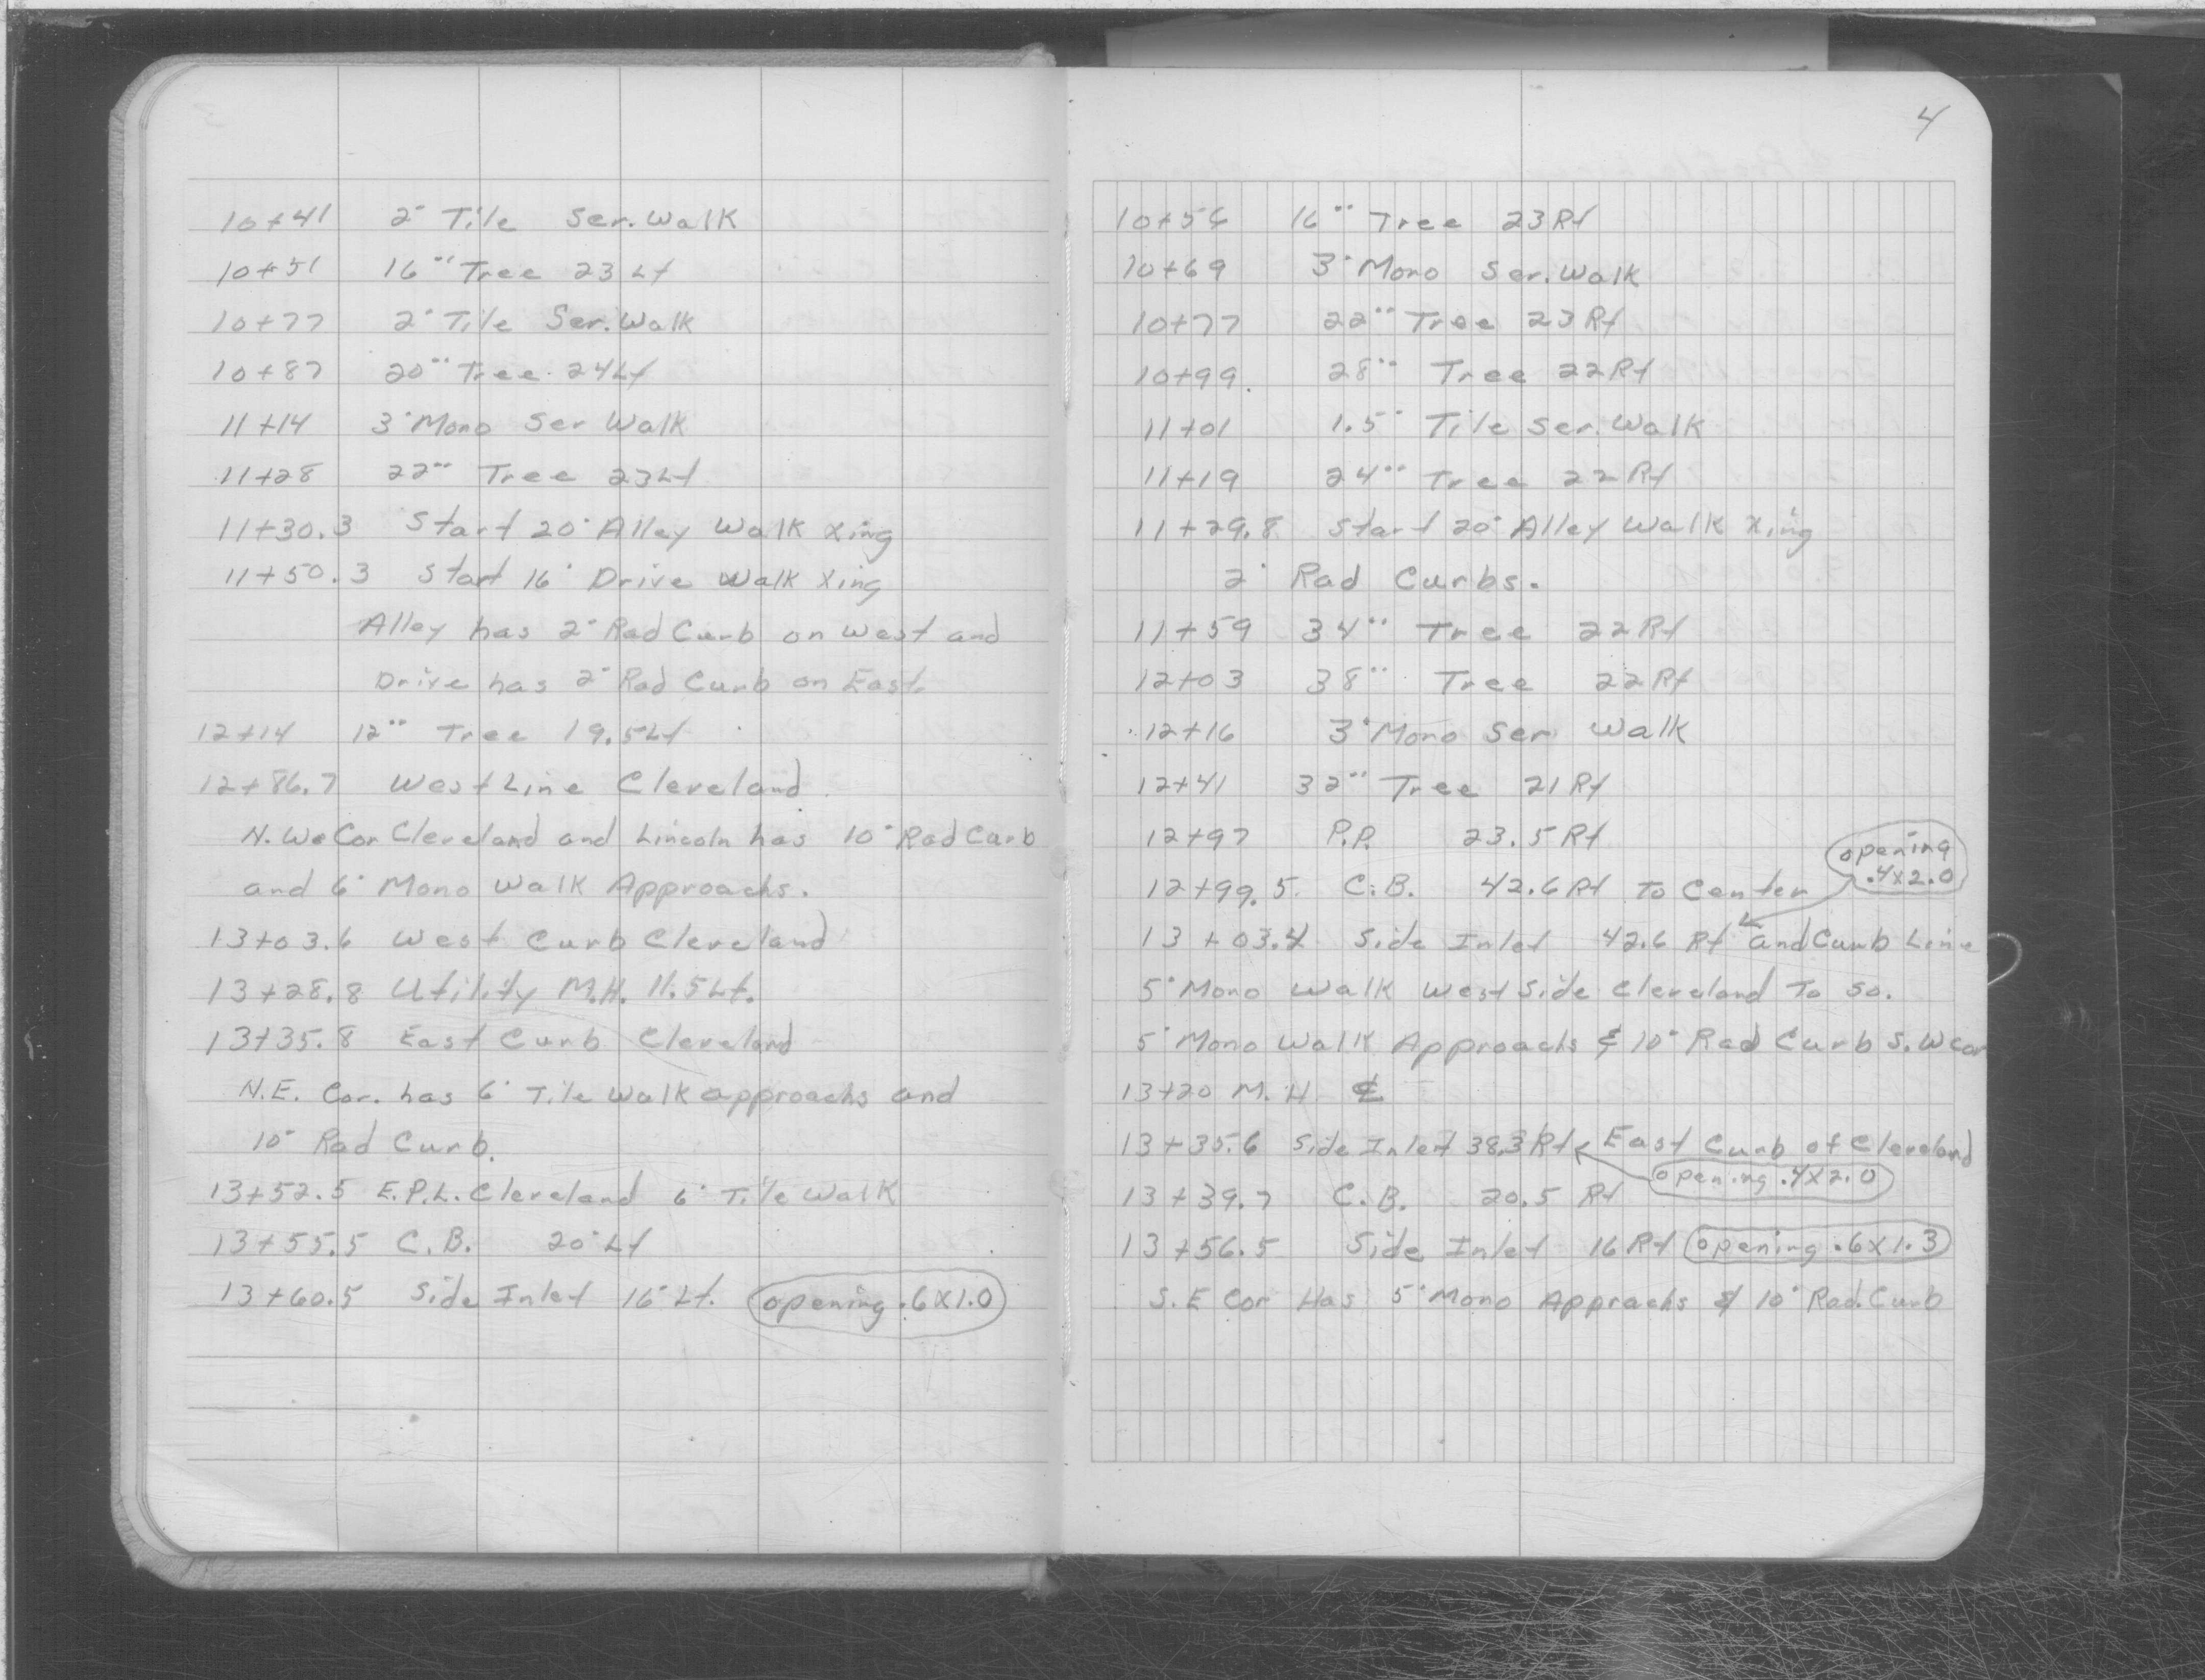 10+41 2' Tile Ser. Walk
10+51 16" Tree 23 Lt
10+77 2' Tile Ser. Walk
10+87 20" Tree 24Lt
11+14 3' Mono Ser Walk
11+28 22" Tree 23Lt
11+30.3 Start 20' Alley Walk Xing
11+50.3 Start 16' Drive Walk Xing
Alley has 2' Rad Curb on West and
Drive has 2' Rad Curb on East.
12+14 12" Tree 19.5Lt
12+86.7 West Line Cleveland
N. We Cor Cleveland and Lincoln has 10' Rad Curb
and 6' Mono Walk Approachs.
13+03.6 West Curb Cleveland
13+28.8 Utility M.H. 11.5Lt.
13+35.8 East Curb Cleveland
N.E. Cor. has 6' Tile Walk approachs and
10' Rad Curb.
13+52.5 E.P.L. Cleveland 6' Tile Walk
13+55.5 C.B. 20' Lt
13+60.5 Side Inlet 16' Lt. opening .6X1.0
4
10+56 16" Tree 23Rt
10+69 3' Mono Ser. Walk
10+77 22" Tree 23Rt
10+99. 28" Tree 22Rt
11+01 1.5' Tile Ser. Walk
11+19 24" Tree 22Rt
11+29.8 Start 20' Alley Walk Xing
2' Rad Curbs.
11+59 34" Tree 22Rt
12+03 38" Tree 22Rt
12+16 3' Mono Ser Walk
12+41 32" Tree 21Rt
12+97 P.P. 23.5Rt
opening
.4x2.0
12+99.5. C.B. 42.6Rt To Center
13+03.4 Side Inlet 42.6 Rt and Curb Line
5' Mono Walk West Side Cleveland To So.
5' Mono Walk Approachs & 10' Rad Curb S.W Cor
13+20 M.H. ℄
13+35.6 Side Inlet 38.3Rt East Curb of Cleveland
opening .4X2.0
13+39.7 C.B. 20.5 Rt
13+56.5 Side Inlet 16Rt opening .6X1.3
S.E Cor Has 5' Mono Apprachs & 10' Rad. Curb